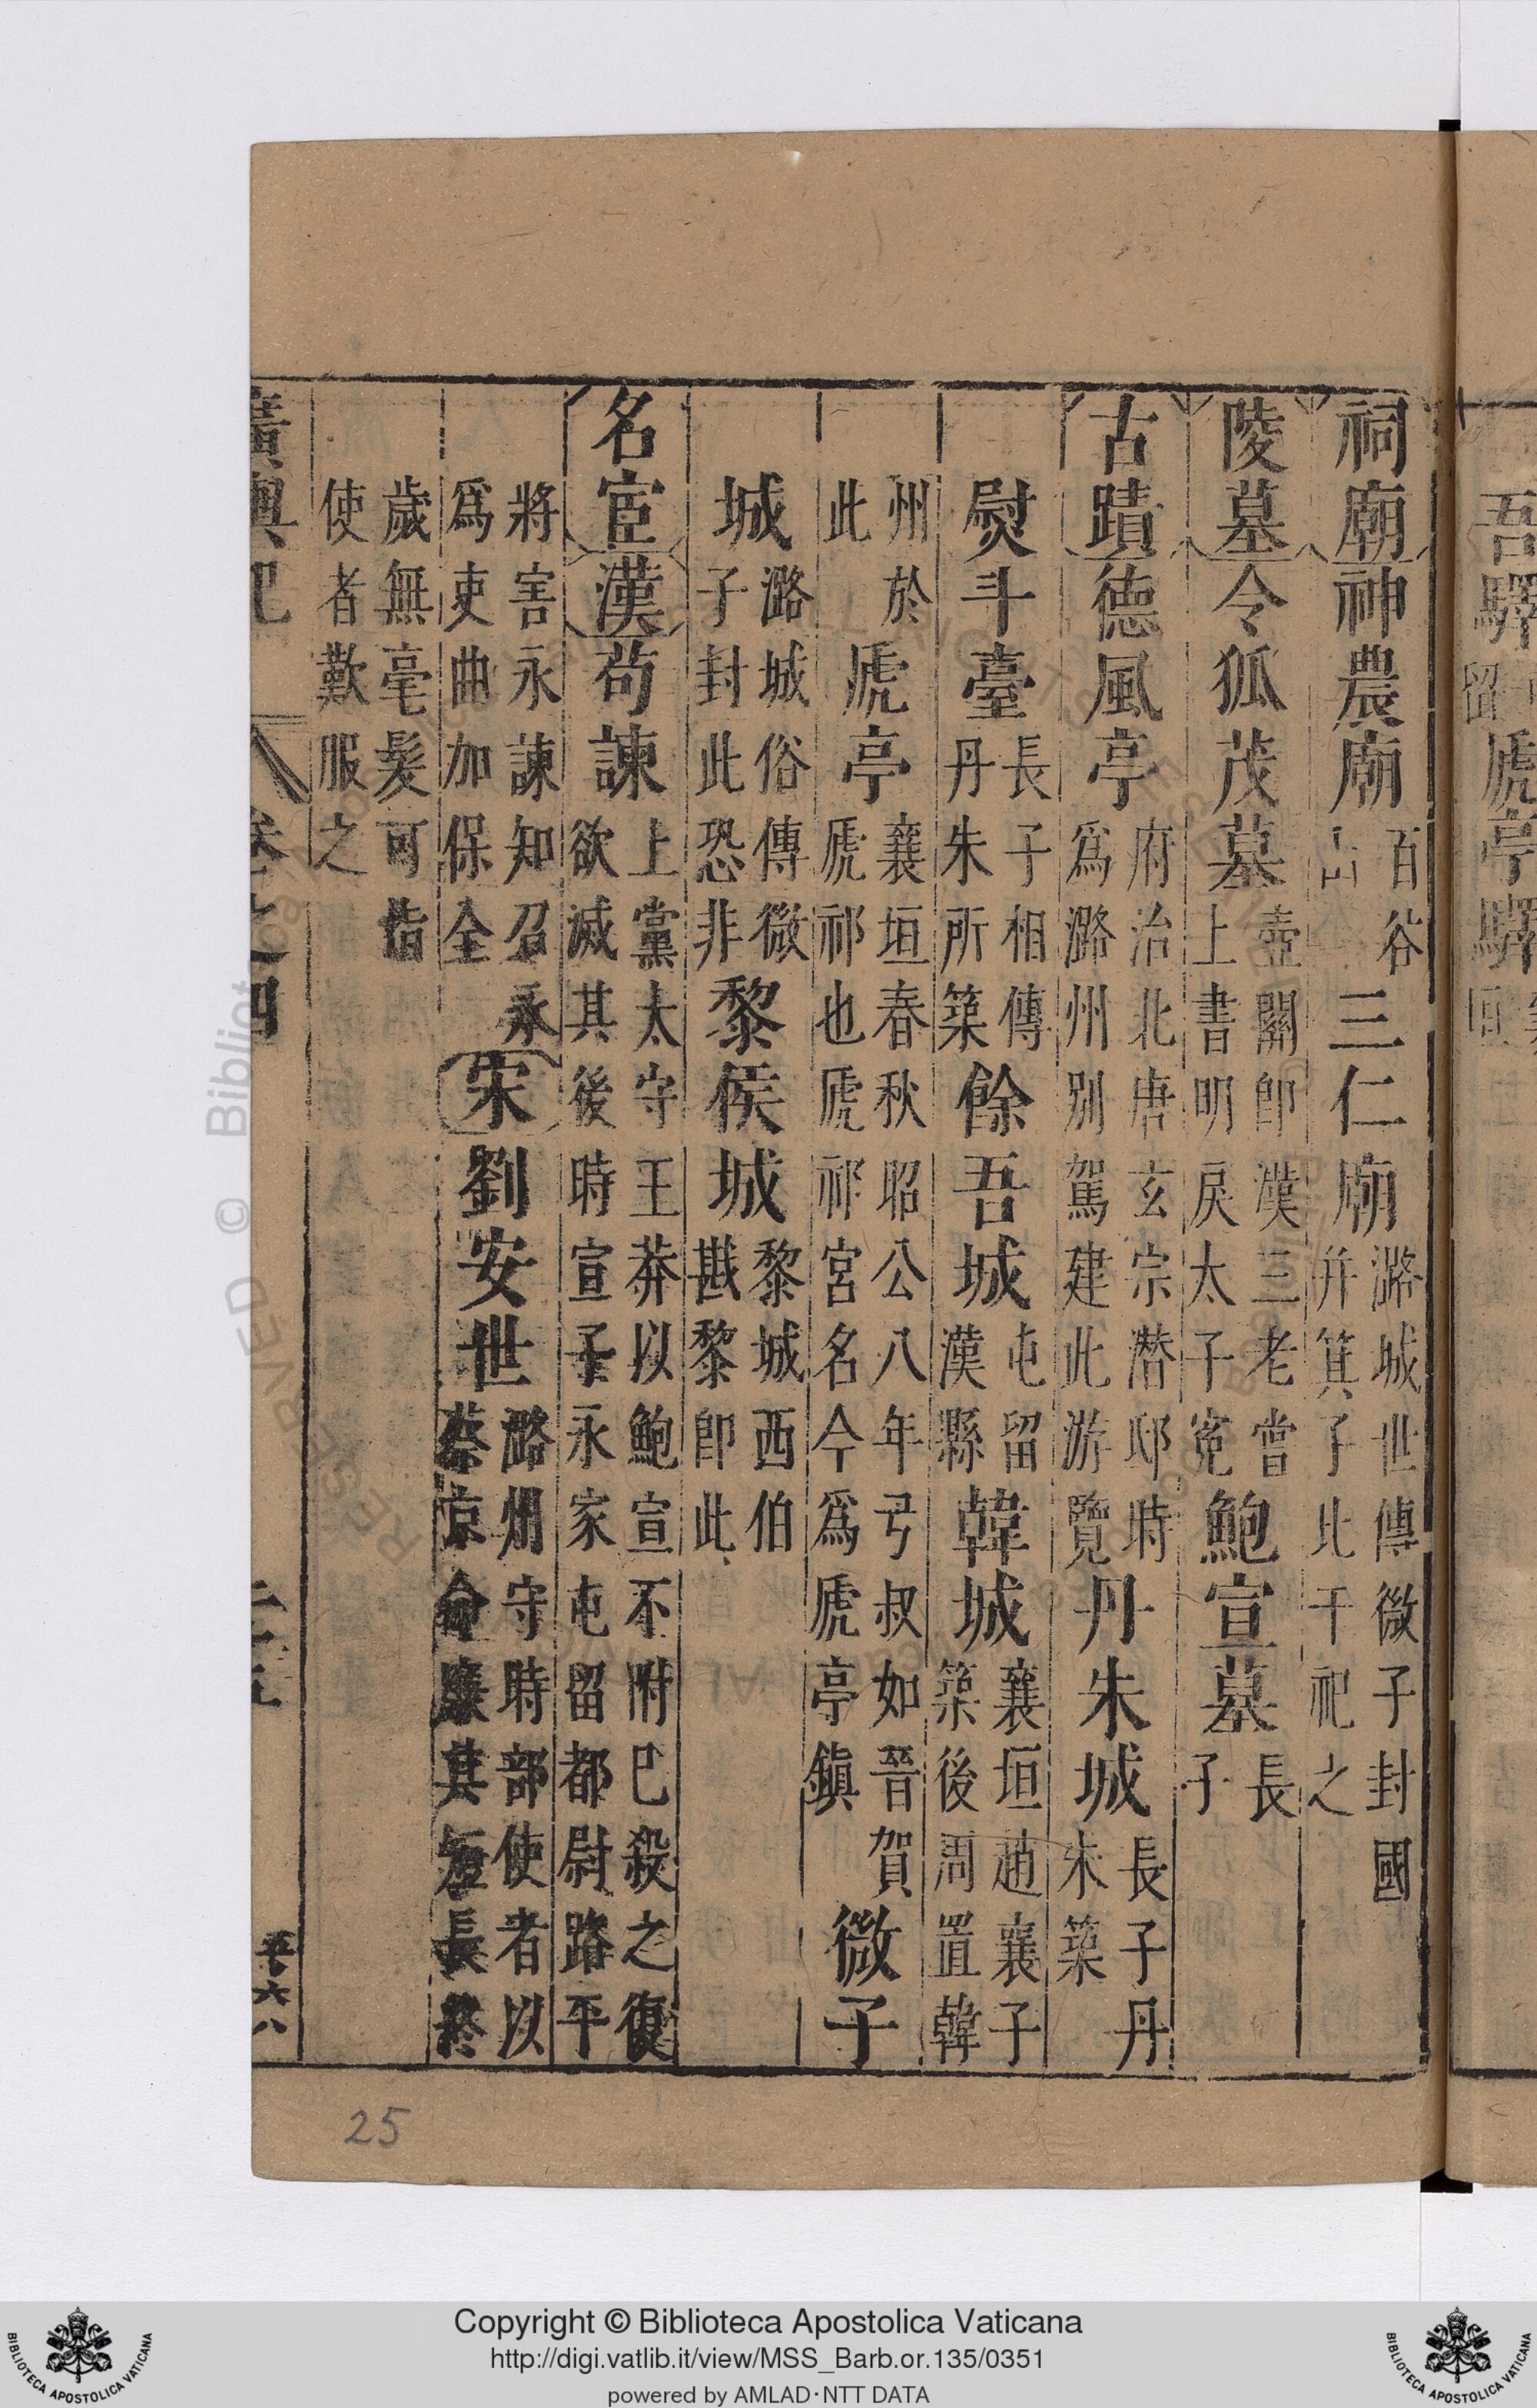 祠廟神農廟百谷山三仁廟潞城世傳微子封國并箕子比干祀之
陵墓令狐茂墓壺關卽漢三老嘗上書明戾太子寃鮑宣墓長子
古蹟德風亭府治北唐玄宗潜邸時爲潞州別駕建此游覽丹朱城長子丹朱築
熨斗臺長子相傳丹朱所築餘吾城屯留漢縣韓城襄垣趙襄子築後周置韓
州於此虒亭襄垣春秋昭公八年弓叔如晉賀虒祁也虒祁宮名今爲虒亭鎭微子
城潞城俗傳微子封此恐非黎侯城黎城西伯戡黎卽此
名宦漢茍諫上黨太守王莽以鮑宣不附巳殺之復欲滅其後時宣子永家屯留都尉路平
將害永諫知召永爲吏曲加保全宋劉安世潞州守時部使者以蔡京命廉其短長終
歲無毫髮可指使者歎服之
廣輿記
卷之四
二十五
六八
吾驛
留
虒亭驛
垣
25
Copyright © Biblioteca Apostolica Vaticana
http://digi.vatlib.it/view/MSS_Barb.or.135/0351
powered by AMLAD·NTT DATA
BIBLIOTECA APOSTOLICA VATICANA
BIBLIOTECA APOSTOLICA VATICANA